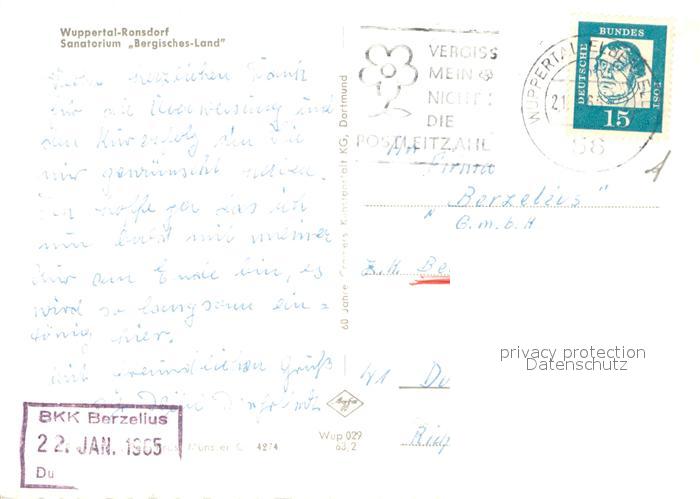 Wuppertal-Ronsdorf
Sanatorium „Bergisches-Land"
herzlichen Dank
für die Überweisung und
den Kurerfolg den Sie
mir gewünscht haben.
Ich hoffe ja das ich
nun bald mit meiner
Kur am Ende bin, es
wird so langsam ein=
tönig hier.
Mit freundlichen Gruß
BKK Berzelius
22. JAN. 1965
Du
Münster 4274
Wup 029
63,2
60 Jahre Cramers Kunstanstalt KG, Dortmund
VERGISS
MEIN
NICHT
DIE
POSTLEITZAHL
WUPPERTAL-ELBERFEL
21
58
DEUTSCHE BUNDES POST
15
An
Firma
„Berzelius"
G.m.b.H
z.H. Be
41 Du
privacy protection
Datenschutz